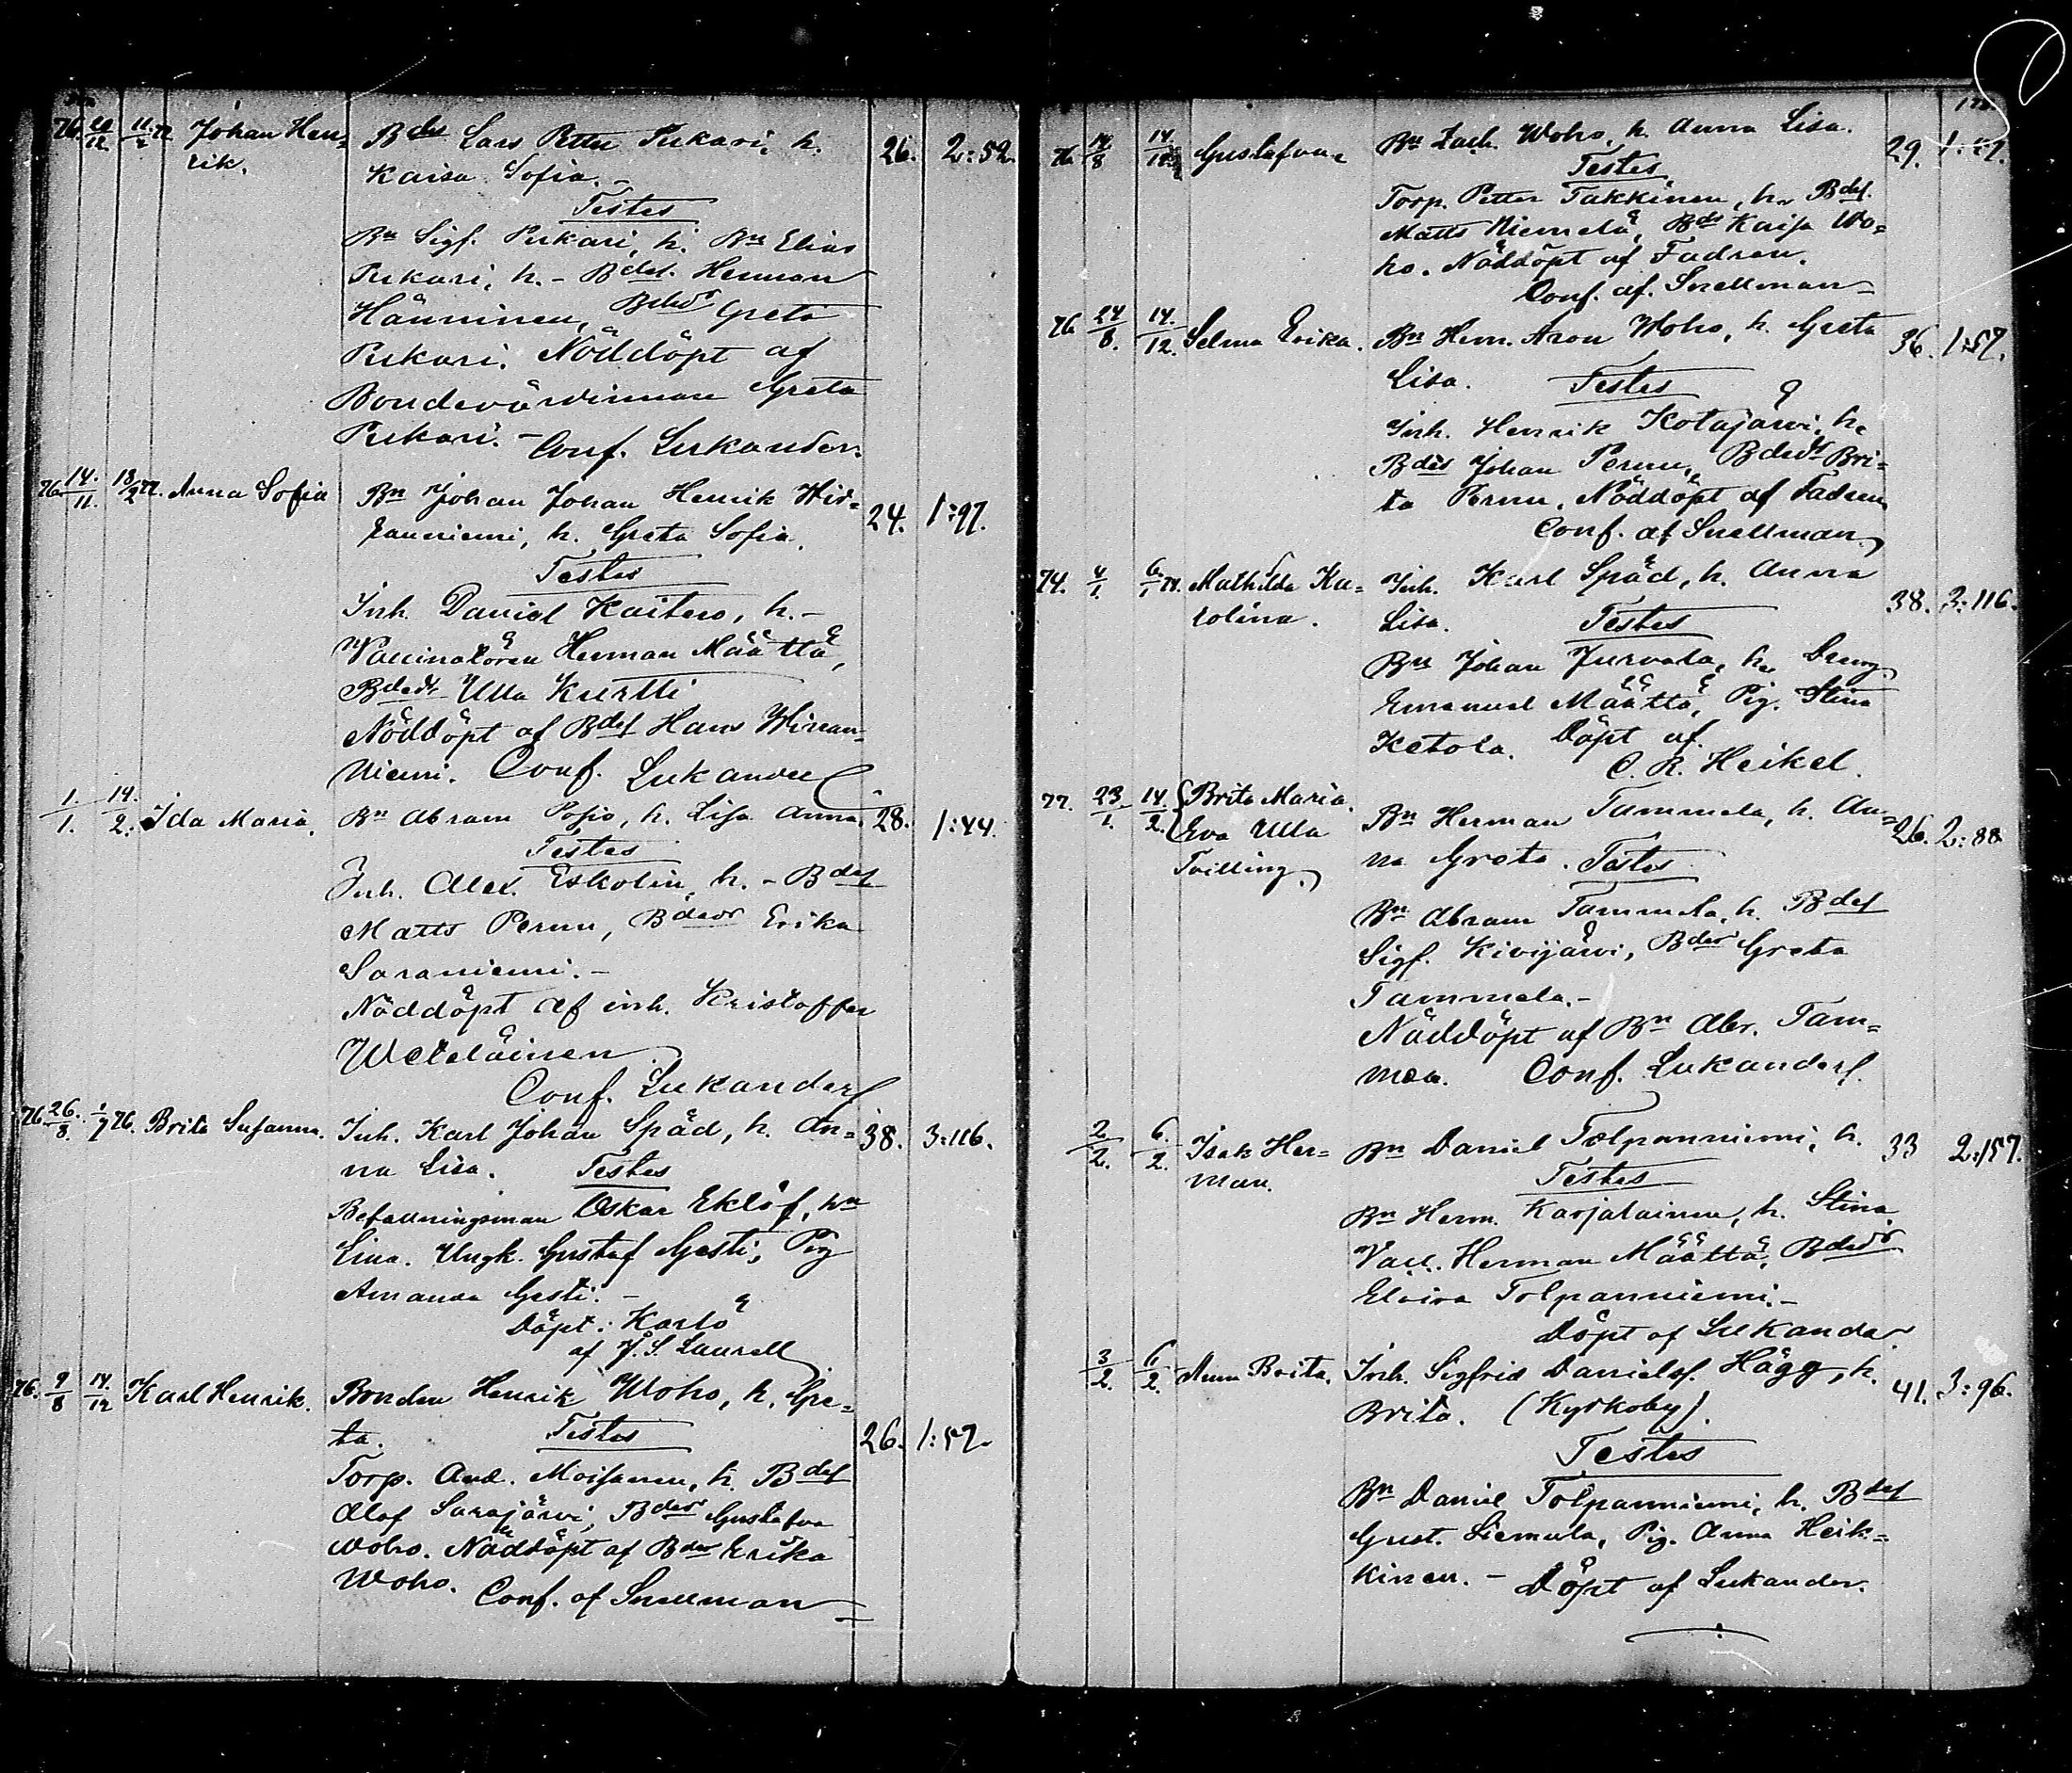 76. 20/12. 11/2 77. Johan Hen= Bdes Lars Petter Pukari, h. 26. 2:52.
rik. Kaisa Sofia. –
Testes
Bn Sigf. Pukari, h. Bn Elias
Pukari, h. – Bdes. Herman
Hänninen, Bdedr Greta
Pukari. Nöddöpt af
Bondevärdinnan Greta
Pukari. – Conf. Lukander.
76 14./11. 18/2 77. Anna Sofia Bn Johan Johan Henrik Wir= 24. 1:97.
kanniemi, h. Greta Sofia.
Testes
Inh. Daniel Kaitero, h. –
Vaccinatören Herman Määttä,
Bdedr Ulla Kurtti
Nöddöpt af Bdes Hans Wirkan=
niemi. Conf. Lukander
1./1. 14./2. Ida Maria. Bn Abram Posio, h. Lisa Anna. 28. 1:44.
Testes
Inh. Alex. Eskolin, h. – Bdes
Matts Pernu, Bdedr Erika
Saraniemi. –
Nöddöpt af inh. Kristoffer
Weteläinen
Conf. Lukander
76 26./8. 1/9 76. Brita Susanna. Inh. Karl Johan Späd, h. An= 38. 3:116.
na Lisa. Testes
Befallningsman Oskar Eklöf, hn
Lina. Ungk. Gustaf Gesti, Pig
Amanda Gesti. –
Döpt i Karlö
af J. S. Laurell
76. 9/8 14./12 Karl Henrik. Bonden Henrik Woho, h. Gre=
ta. Testes 26. 1:57.
Torp. And. Moisanen, h. Bdes
Olof Sarajärvi, Bdedr Gustafva
Woho. Nöddöpt af Bdr Erika
Woho. Conf. af Snellman
76. 14./8 14./12 Gustafva Bn Zach. Woho, h. Anna Lisa. 29. 1:57.
Testes
Torp. Petter Takkinen, h. Bdes.
Matts Niemelä, Bdr Kaisa Wo=
ho. Nöddöpt af Fadren.
Conf. af. Snellman
76 24/8. 14./12. Selma Erika. Bn Hem. Aron Woho, h. Greta 36. 1:57.
Lisa. Testes
Inh. Henrik Kotajärvi, h.
Bdes Johan Pernu, Bdedr Bri=
ta Pernu. Nöddöpt af Fadren
Conf. af Snellman
74. 4/1. 6/1 74. Mathilda Ka= Inh. Karl Späd, h. Anna 38. 3:116.
rolina. Lisa. Testes
Bn Johan Jurvala, h. Dreng
Emanuel Määttä, Pig. Stina
Ketola. Döpt af.
C. R. Heikel.
77. 23./1. 14./2. Brita Maria. Bn Herman Tammela, h. An= 26. 2:88
Eva Ulla na Greta. Testes
Tvilling.
Bn Abram Tammela, h. Bdes
Sigf. Kivijärvi, Bdr Greta
Tammela. –
Nöddöpt af Bn Abr. Tam=
mela. Conf. Lukander.
2/2. 6./2. Isak Her= Bn Daniel Tolpanniemi, h. 33 2:157.
man. Testes
Bn Herm. Karjalainen, h. Stina
Vacc. Herman Määttä, Bdedr
Elvira Tolpanniemi. –
Döpt af Lukander
3/2. 6/2. Anna Brita. Inh. Sigfrid Danielss. Hägg, h. 41. 3:96.
Brita. (Kyrkoby).
Testes
Bn Daniel Tolpanniemi, h. Bdes
Gust. Liemula, Pig. Anna Heik=
kinen. – Döpt af Lukander.